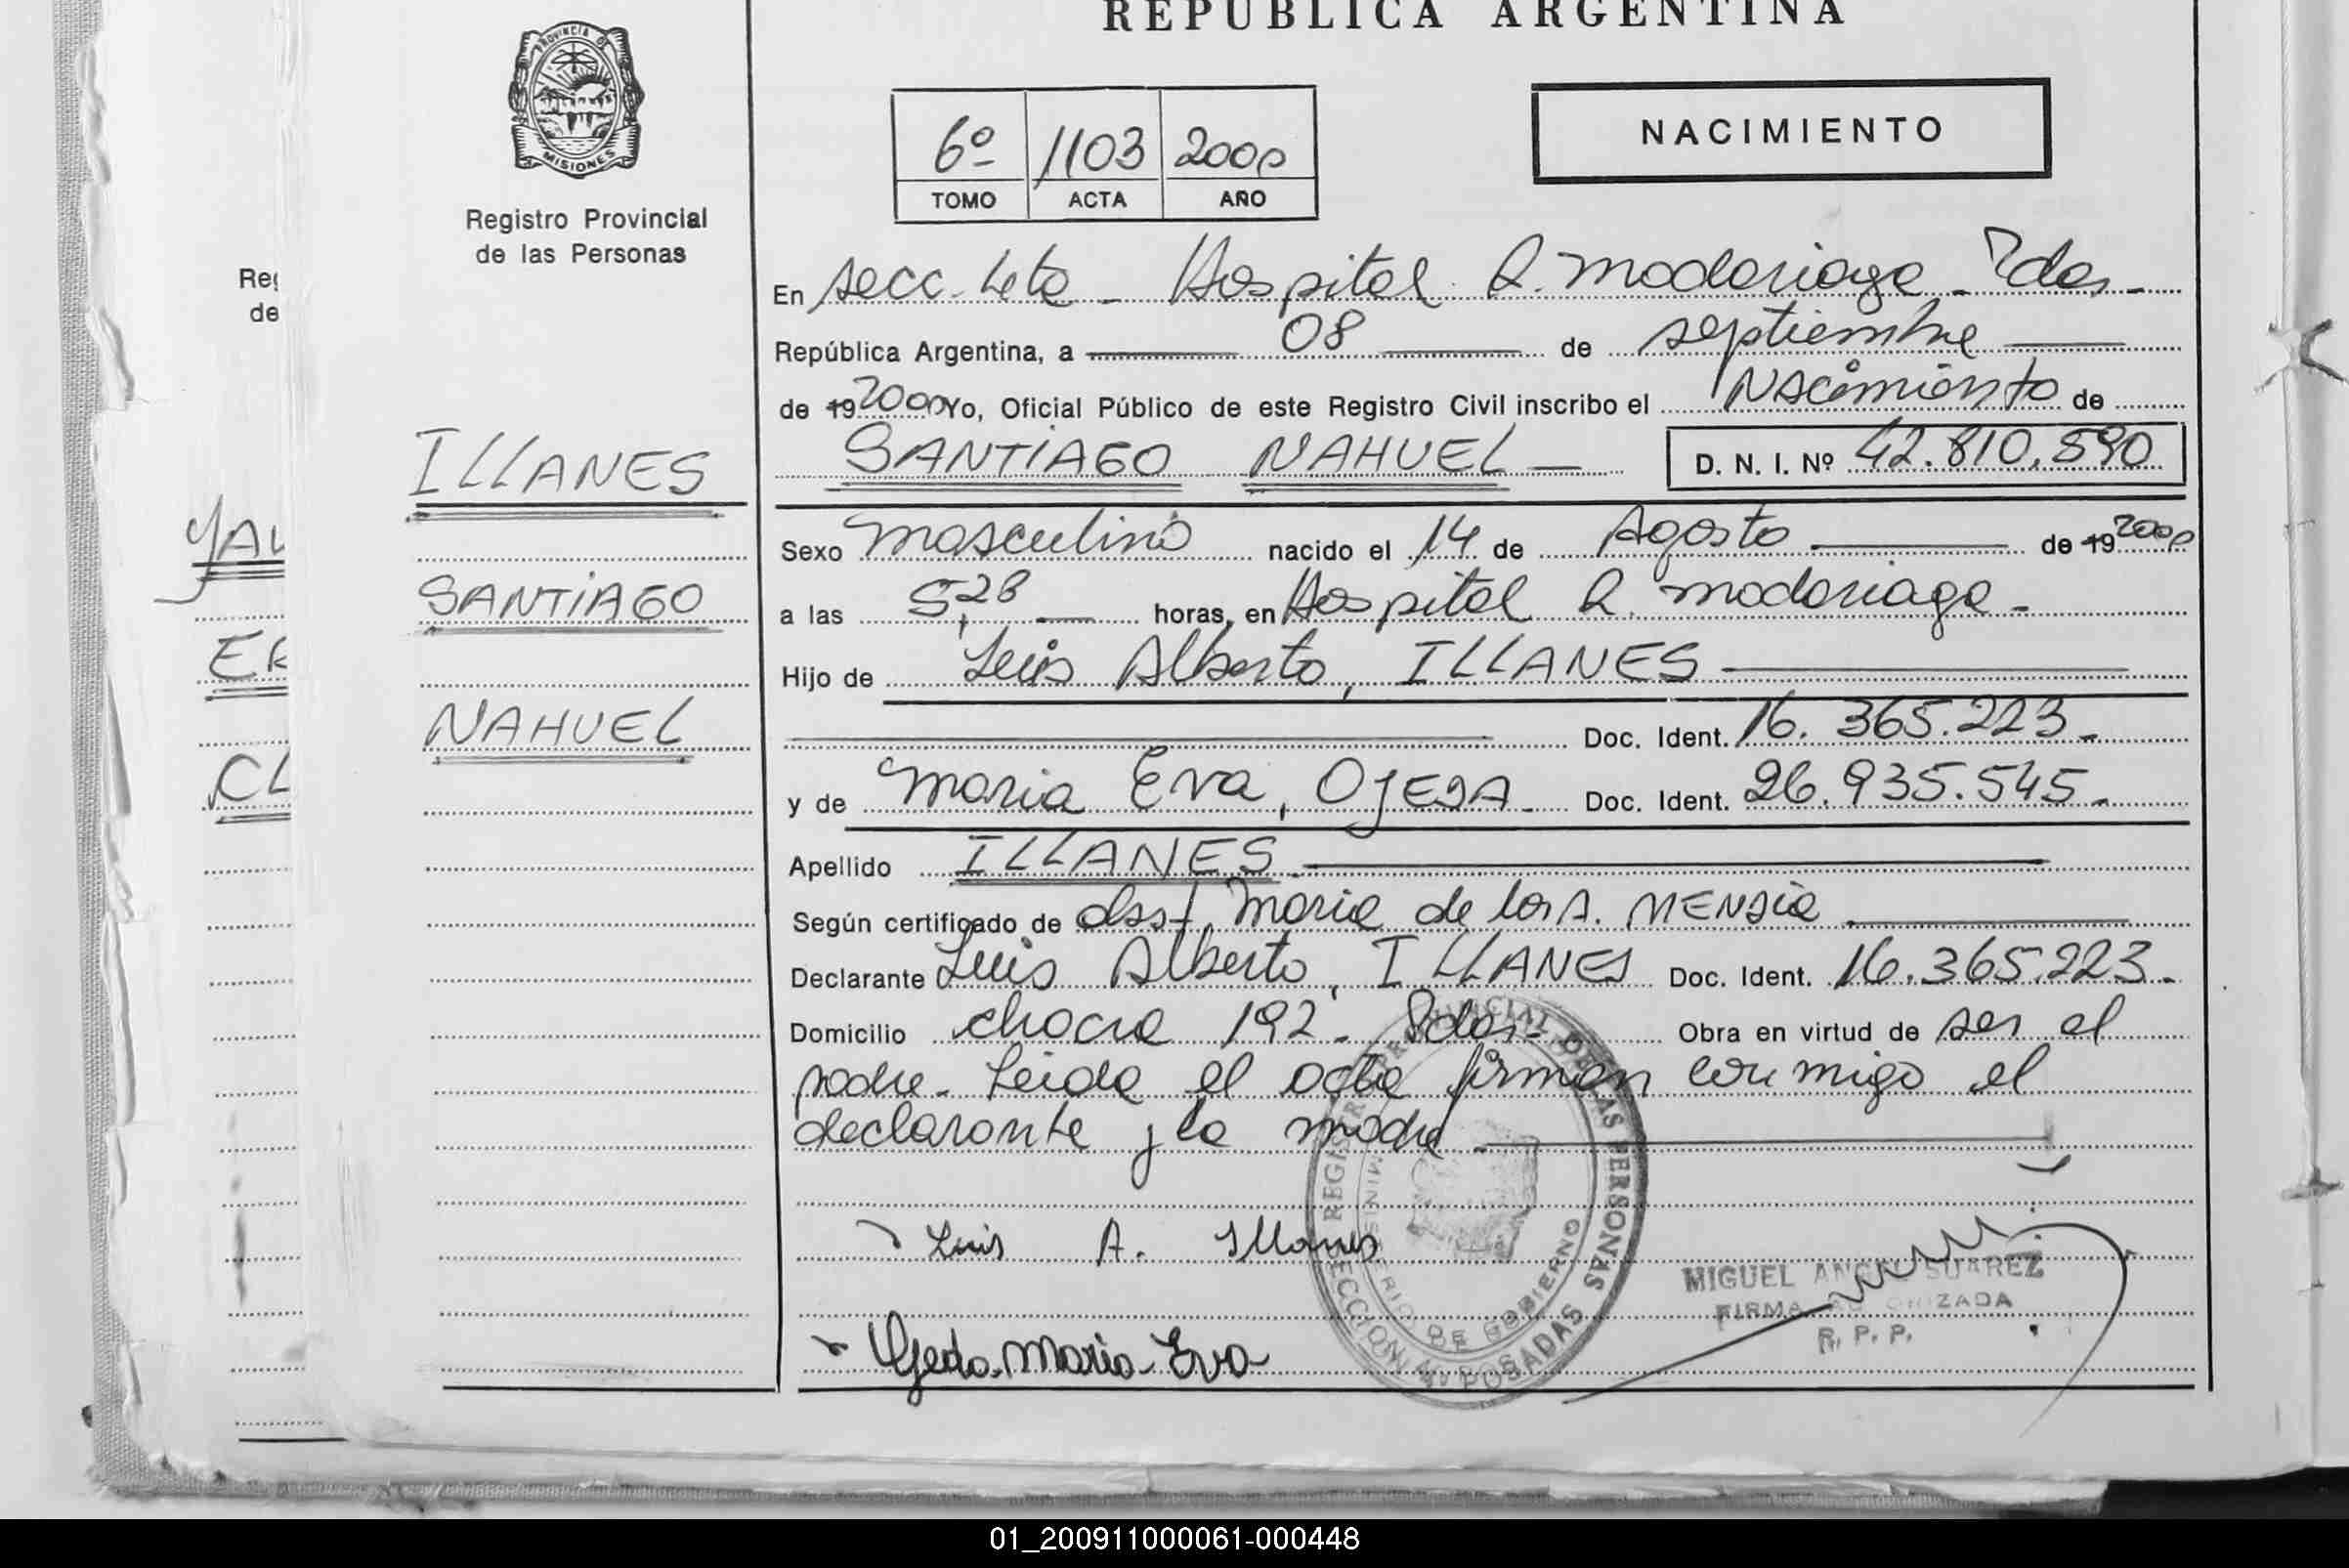 REPUBLICA ARGENTINA
PROVINCIA DE
MISIONES
Registro Provincial
de las Personas
6º 1103 2000
TOMO ACTA AÑO
NACIMIENTO
En secc. 4ta - Hospital R. Madariaga - Pdas.-
República Argentina, a 08 de septiembre
de 19 2000 Yo, Oficial Público de este Registro Civil inscribo el Nacimiento de
SANTIAGO NAHUEL — D. N. I. Nº 42.810.590
Sexo masculino nacido el 14 de Agosto de 19 2000
a las 5,28 horas, en Hospital R. Madariaga -
Hijo de Luis Alberto, ILLANES
Doc. Ident. 16.365.223.-
y de Maria Eva, OJEDA - Doc. Ident. 26.935.545.-
Apellido ILLANES.
Según certificado de Maria de los A. MENDIA
Declarante Luis Alberto, ILLANES Doc. Ident. 16.365.223.-
Domicilio 192 - Pdas.- Obra en virtud de ser el
padre. Leida el acta firman conmigo el
declarante y la madre
Luis A. Illanes
Ojeda. Maria Eva
ILLANES
SANTIAGO
NAHUEL
REGISTRO PROVINCIAL DE LAS PERSONAS
MINISTERIO DE GOBIERNO
POSADAS
MIGUEL ANGEL SUAREZ
FIRMA AUTORIZADA
R. P. P.
Reg
de
YAL
ER
CL
01_200911000061-000448